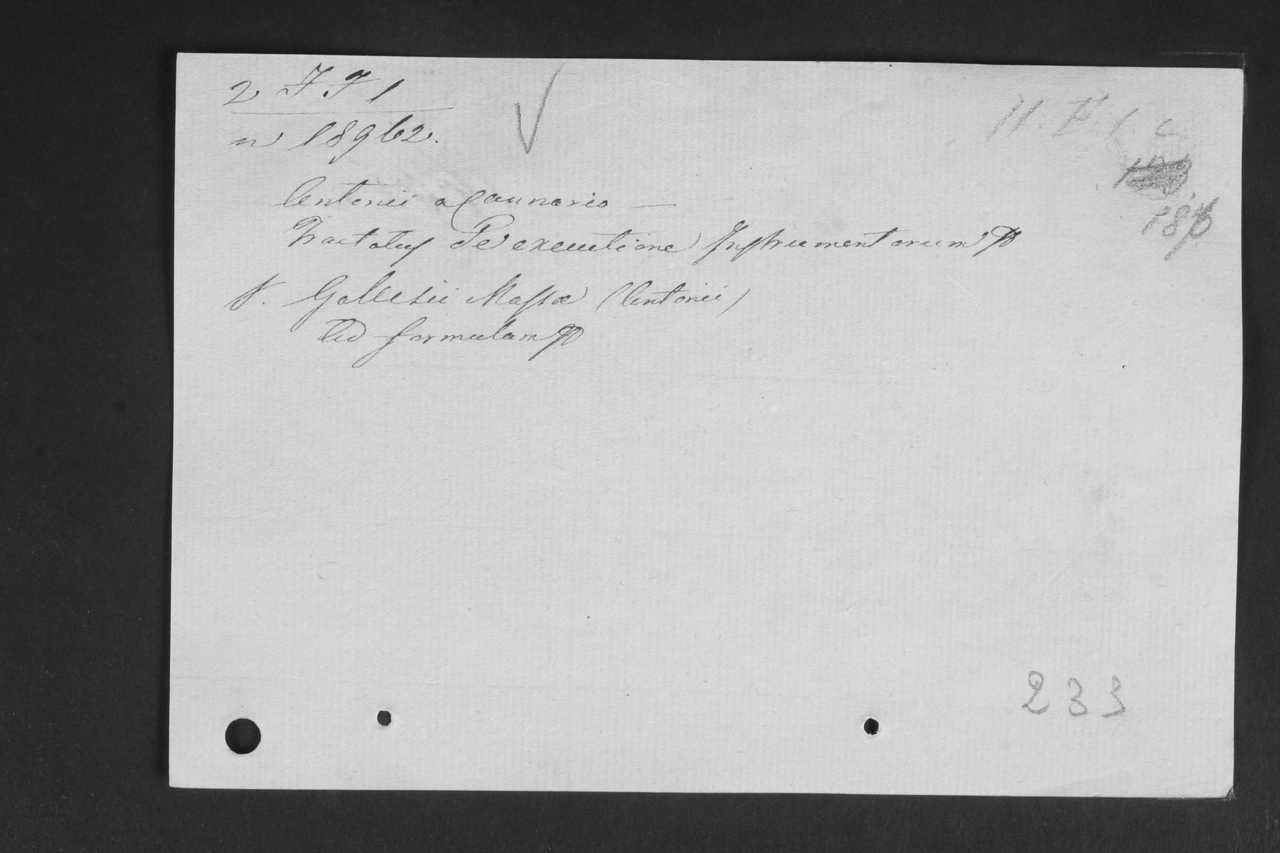 2 F F 1
n 18962.
Antonii a Cannario —
Tractatus De executione Instrumentorum
v. Gallesii Massæ (Antonii)
Ad formulam
II. F. 1 c
233